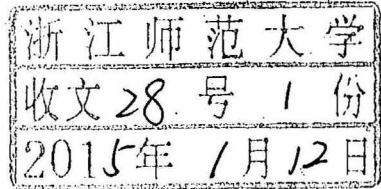 浙江师范大学
收文28号 1份
2015年1月12日